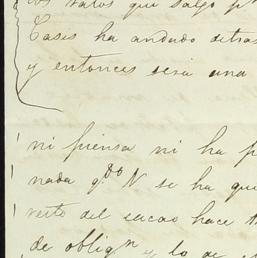 los ratos que salgo pª
Casas ha andado detras
y entonces será una
ni piensa ni ha p
nada q.do N se ha que
resto del cacao hace t
de obligⁿ y lo de